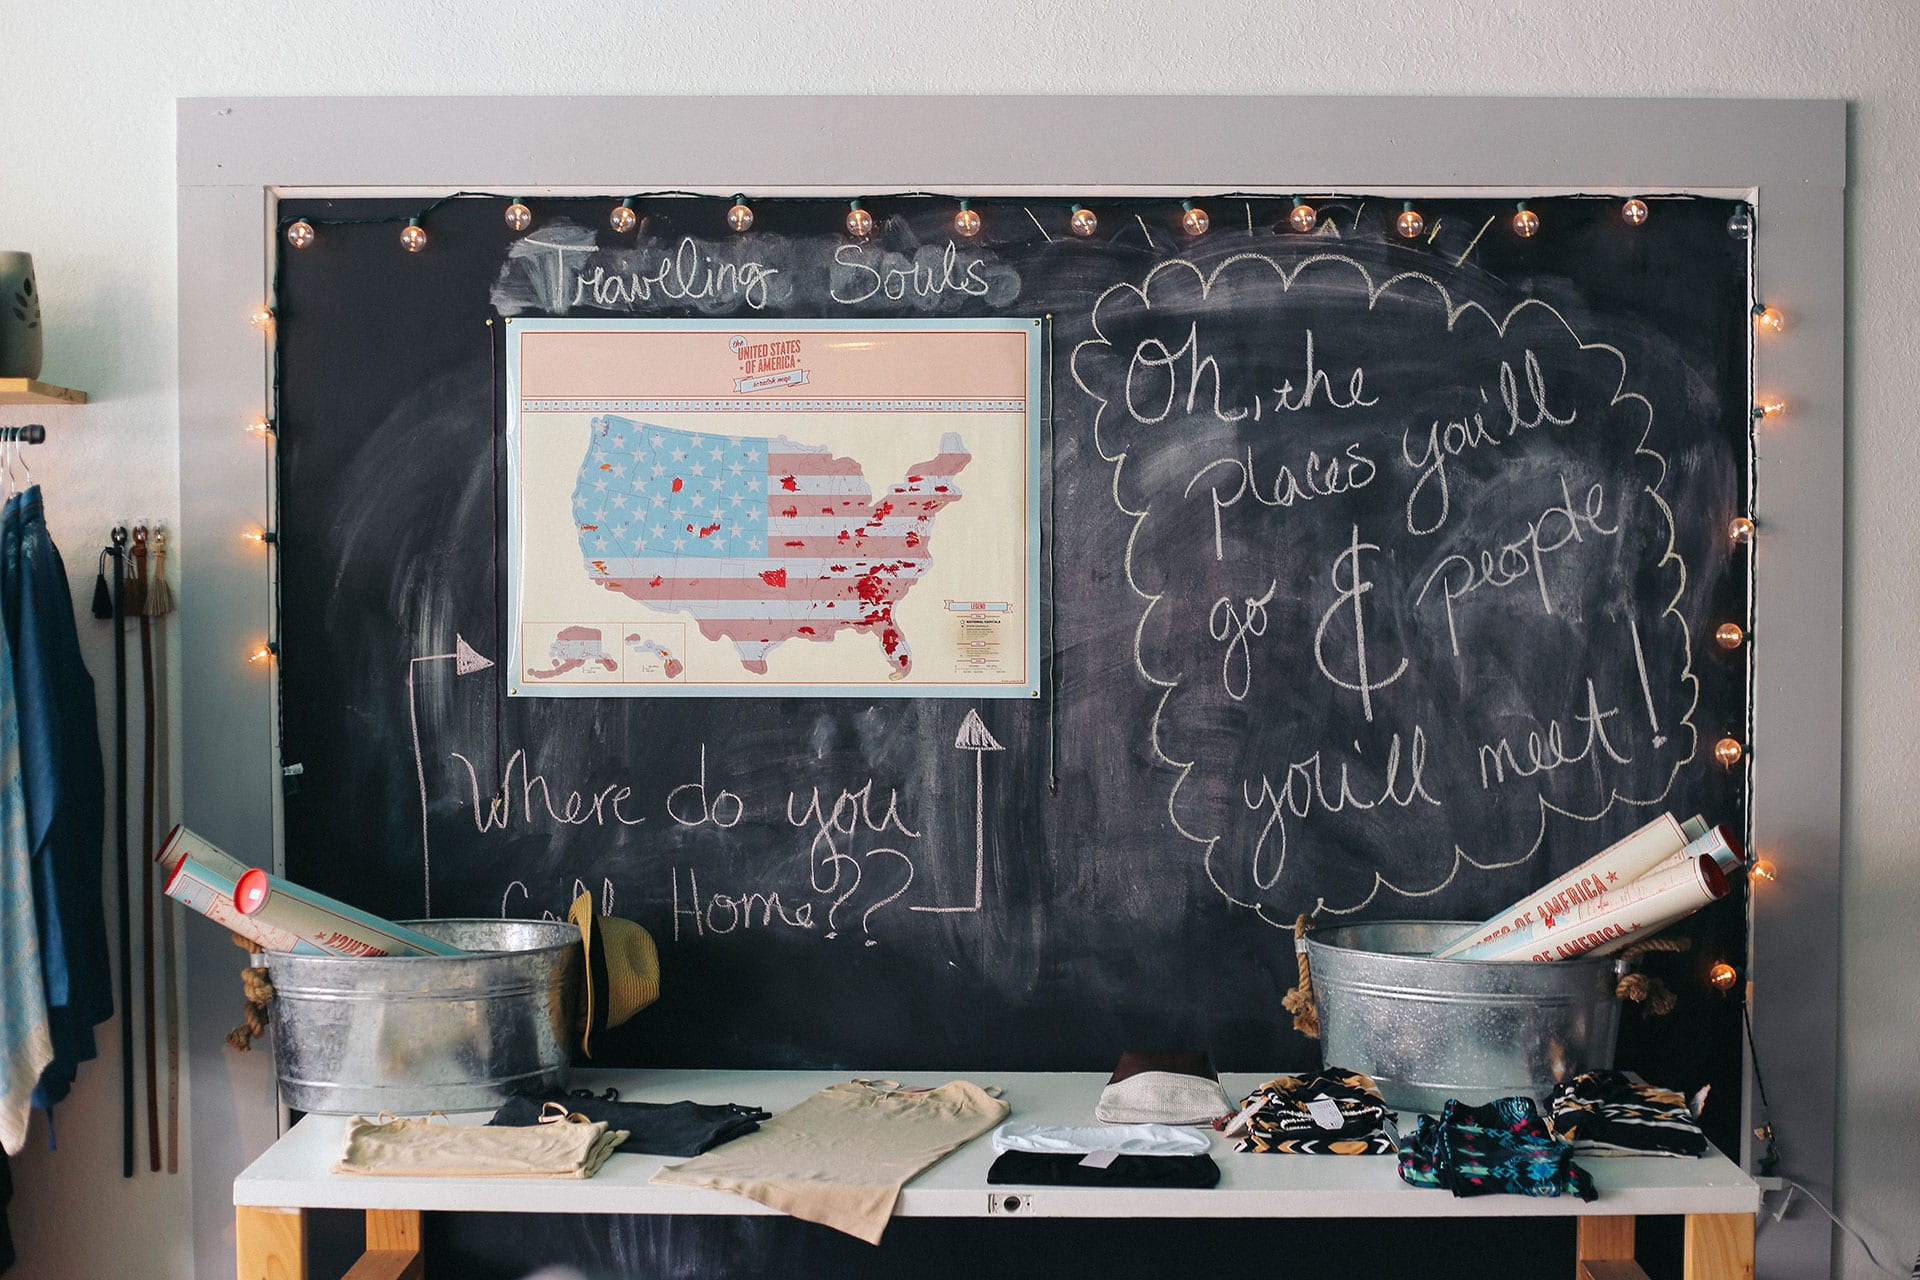 Traveling Souls
the
UNITED STATES
OF AMERICA
scratch map
LEGEND
Where do you
Call Home??
Oh, the
places you'll
go & people
you'll meet!
AMERICA
STATES OF AMERICA
OF AMERICA